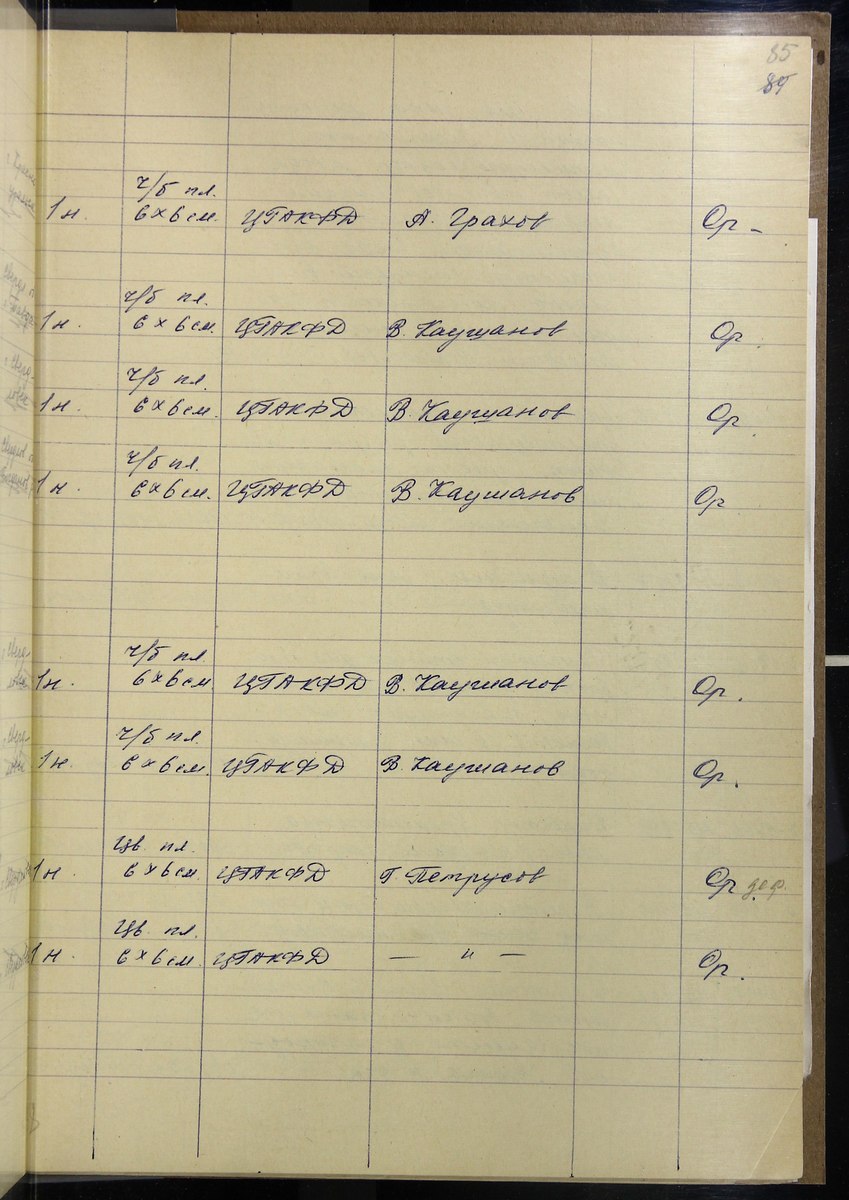 85
84
ч/б пл.
1 н. 6 х 6 см. ЦГАКФД А. Грахов Ор –
ч/б пл.
1 н. 6 х 6 см. ЦГАКФД В. Каушанов Ор.
ч/б пл.
1 н. 6 х 6 см. ЦГАКФД В. Каушанов Ор
ч/б пл.
1 н. 6 х 6 см. ЦГАКФД В. Каушанов Ор
ч/б пл.
1 н. 6 х 6 см. ЦГАКФД В. Каушанов Ор.
ч/б пл.
1 н. 6 х 6 см. ЦГАКФД В. Каушанов Ор.
Цв. пл.
1 н. 6 х 6 см. ЦГАКФД Г. Петрусов Ор. деф.
Цв. пл.
1 н. 6 х 6 см. ЦГАКФД — " — Ор.